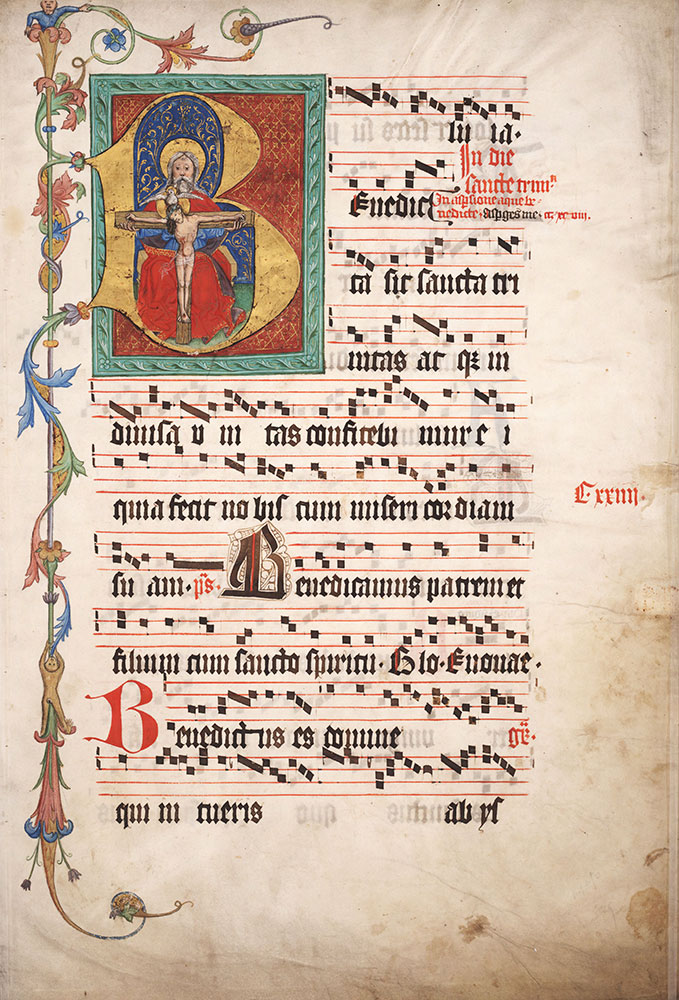 lu ia.
In die
sancte trini
In aspsione aque be
nedicte. Aspges me. CC xc viii.
BEnedict
ta sit sancta tri
nitas at q3 in
divisa u ni tas confitebi mur e i
quia fecit no bis cum miseri cor diam
su am. ps. Benedicamus patrem et
filium cum sancto spiritu. Glo. Euouae.
Benedict us es domine gr.
qui in tueris ab ys
Cxxiii.